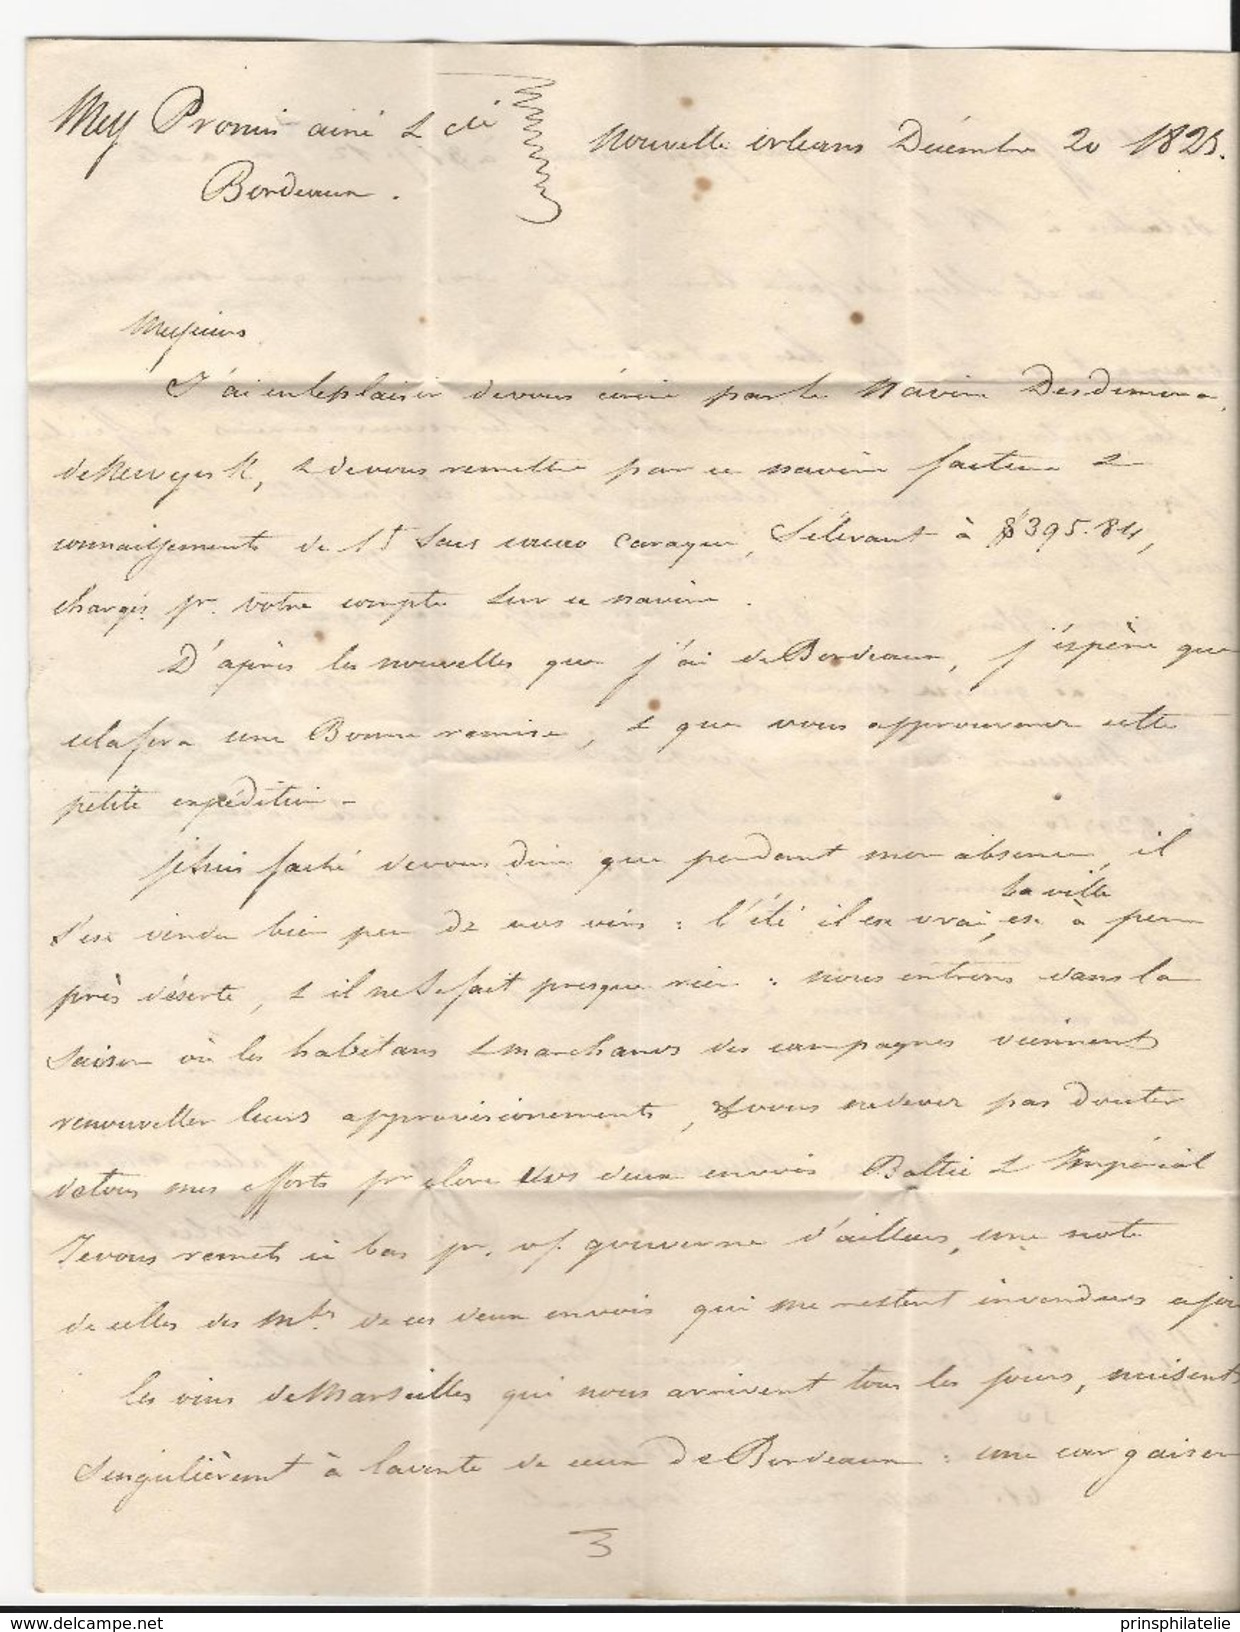 Mess Promis ainé & cie
Bordeaux.
Nouvelle orléans Décembre 20 1825.
Messieurs
J'ai eu le plaisir de vous écrire par le Navire Desdemona,
de New york, & de vous remettre par ce navire facture &
connaissements de 15 Sacs cacao Caraque, S'élevant à $395.84,
chargés pr. votre compte sur ce navire.
D'après les nouvelles que j'ai de Bordeaux, j'espère que
cela fera une Bonne remise, & que vous approuverez cette
petite expédition -
je suis faché de vous dire que pendant mon absence, il
S'est vendu bien peu de vos vins : l'été il est vrai, la ville est à peu
près déserte, & il ne Se fait presque rien : nous entrons dans la
Saison où les habitans & marchands des campagnes viennent
renouveller leurs approvisionements, & vous ne devez pas douter
de tous mes efforts pr clore vos deux envois Baltic & Impérial
Je vous remets ici bas pr. vf. gouverne d'ailleurs, une note
de celles des mses de ces deux envois qui me restent invendues a jou
les vins de Marseilles qui nous arrivent tous les jours, nuisent
Singulièrement à la vente de ceux de Bordeaux : une cargaison
3
delcampe.net
prinsphilatelie